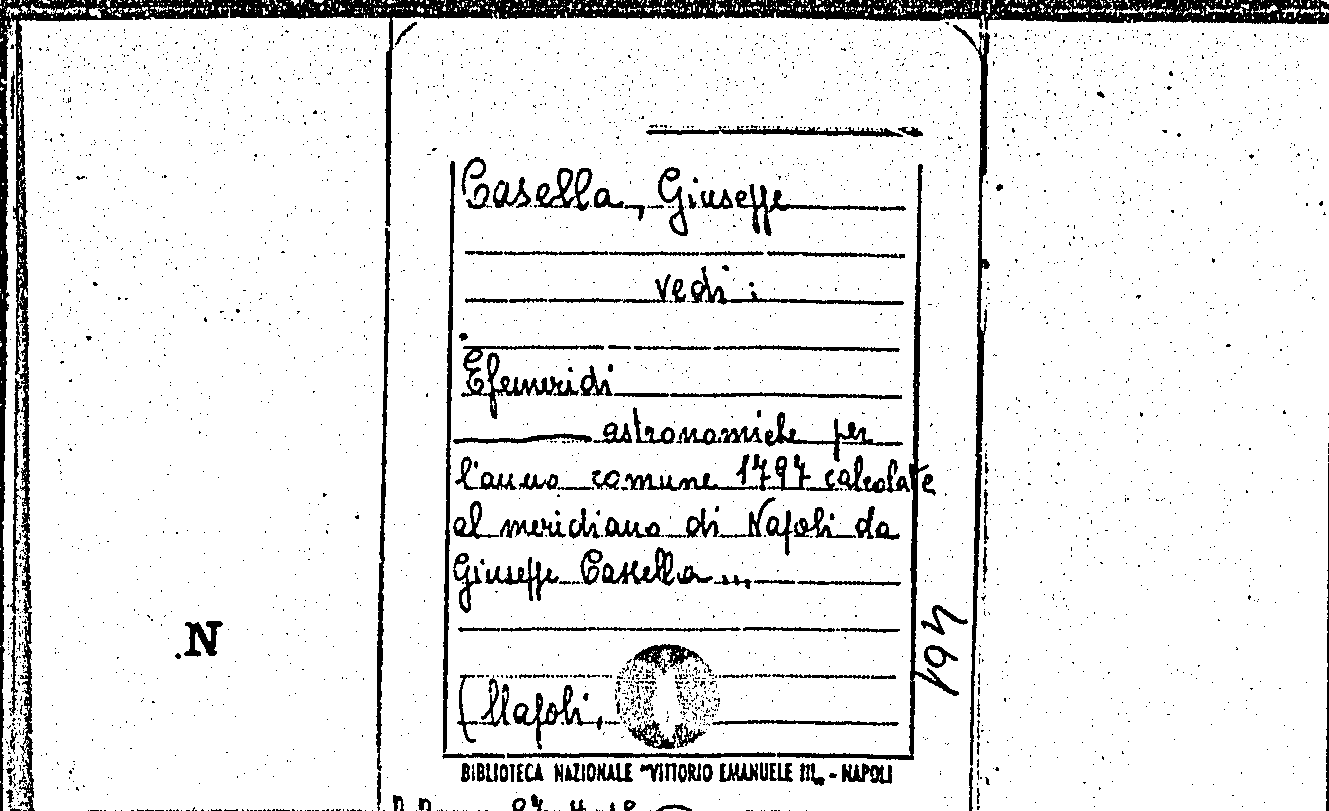 Casella, Giuseppe
vedi:
Efemeridi
astronomiche per
l'anno comune 1797 calcolate
al meridiano di Napoli da
Giuseppe Casella ...
(Napoli,
BIBLIOTECA NAZIONALE "VITTORIO EMANUELE III„ - NAPOLI
.N